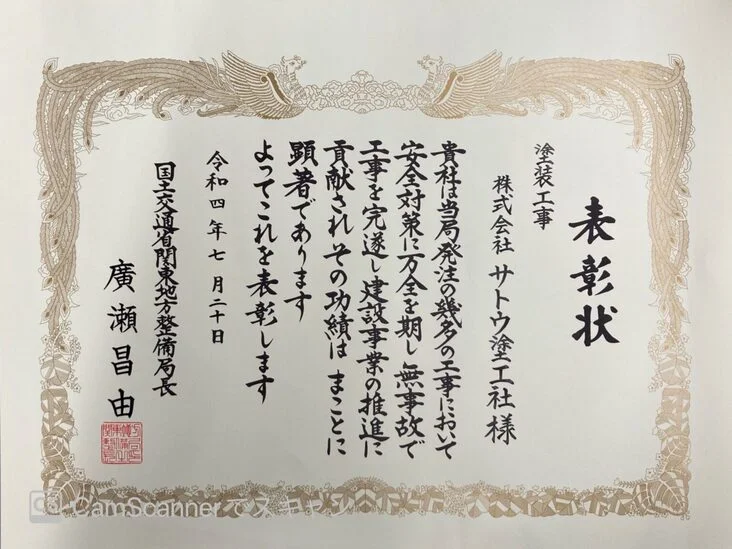 表彰状
塗装工事
株式会社 サトウ塗工社 様
貴社は当局発注の幾多の工事において
安全対策に万全を期し無事故で
工事を完遂し建設事業の推進に
貢献されその功績はまことに
顕著であります
よってこれを表彰します
令和四年七月二十日
国土交通省関東地方整備局長
廣瀬昌由
CamScannerでスキャン